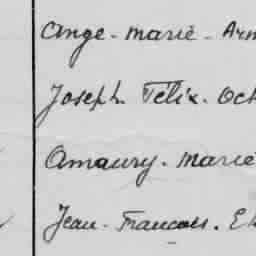 Ange - Marie - Arm
Joseph - Félix - Oct
Amaury - Marie
Jean - François - E